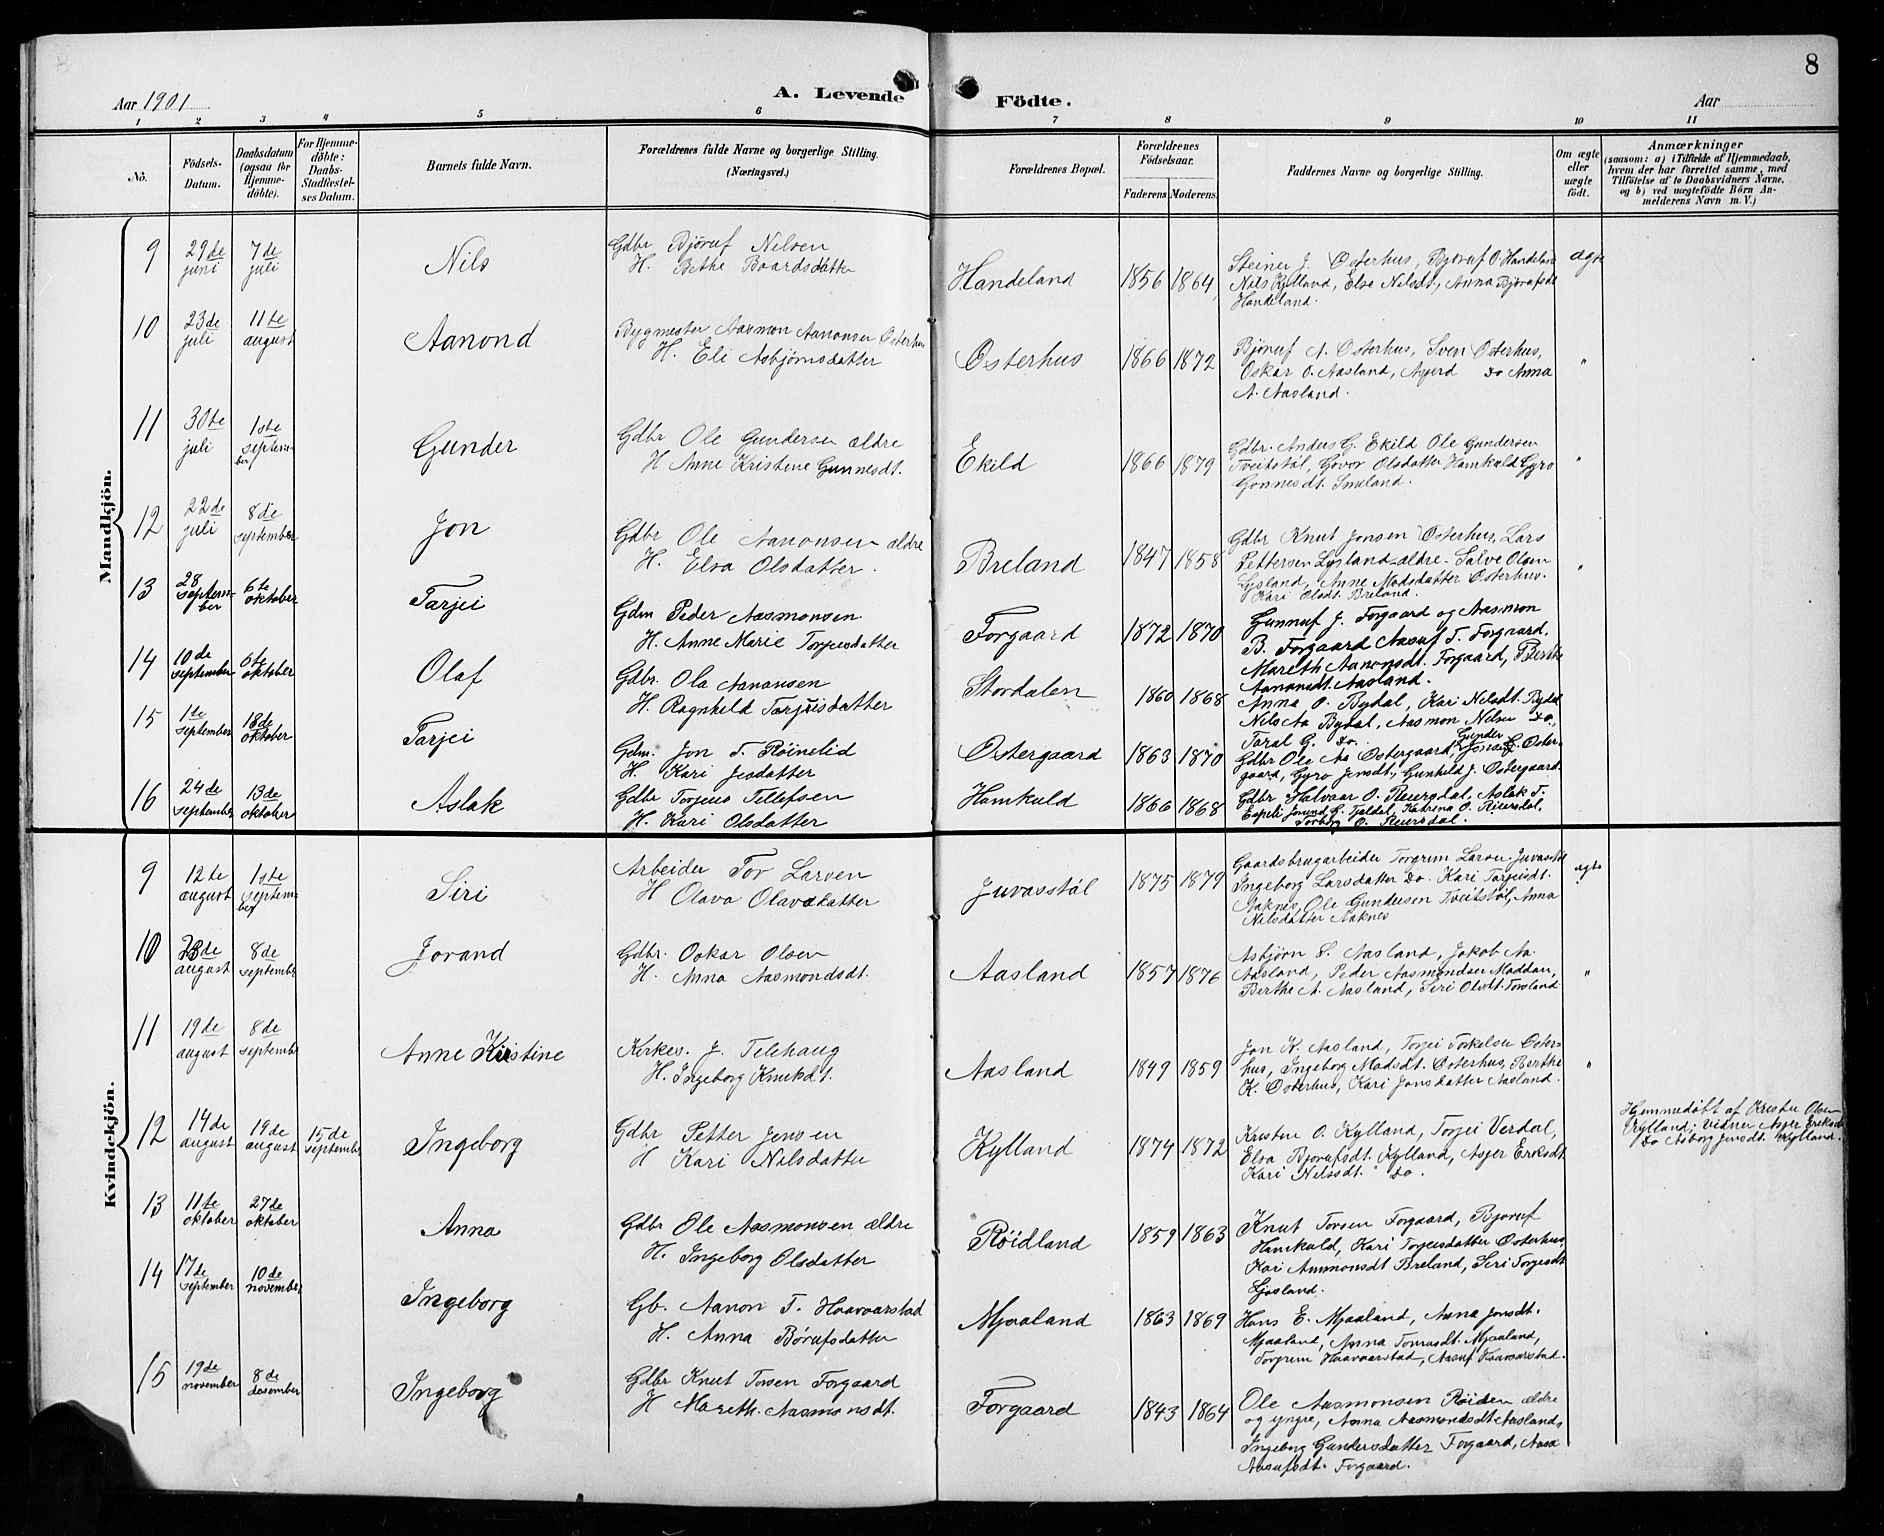 8
Aar 1901
A. Levende Födte.
Aar
1 2 3 4 5 6 7 8 9 10 11
No. Födsels-Datum. Daabsdatum (ogsaa for Hjemme-döbte). For Hjemme-döbte: Daabs-Stadfæstel-ses Datum. Barnets fulde Navn. Forældrenes fulde Navne og borgerlige Stilling. (Næringsvei.) Forældrenes Bopæl. Forældrenes Födselsaar. Faderens Moderens. Faddernes Navne og borgerlige Stilling. Om ægte eller uægte födt. Anmærkninger (saasom: a) i Tilfælde af Hjemmedaab, hvem der har forrettet samme, med Tilföielse af to Daabsvidners Navne, og b) ved uægtefödte Börn Anmelderens Navn m. V.)
Mandkjön.
9 29de juni 7de juli Nils Gdbr Björuf Nilsen
H. Bethe Baardsdatter Handeland 1856 1864 Steiner J. Osterhus, Björuf O. Handeland
Nils Kylland, Elsa Nilsdt., Anna Bjorufsdt
Handeland. ægte
10 23de juli 11te august Aanond Bygmester Aasmon Aanonsen Osterhus
H. Eli Asbjörnsdatter Osterhus 1866 1872 Björuf A. Osterhus, Sven Osterhus,
Oskar O. Aasland, Asjerd do Anna
A. Aasland. "
11 30te juli 1ste september Gunder Gdbr Ole Gundersen ældre
H Anne Kristine Gunnesdt. Ekild 1866 1879 Gdbr. Anders G. Ekild Ole Gundersen
Tveitstöl, Govor Olsdatter Hamkuld Gyro
Gonnesdt. Smeland. "
12 22de juli 8de september Jon Gdbr Ole Aanonsen ældre
H. Elsa Olsdatter. Breland 1847 1858 Gdbr Knut Jonsen Osterhus, Lars
Pettersen Lysland ældre. Salve Olsen
Lysland, Anne Madsdatter Osterhus.
Kari Olsdt. Breland. "
13 28 september 6te oktober Tarjei Gdm Peder Aasmonsen
H. Anne Marie Torjusdatter Forgaard 1872 1870 Gunnuf J. Forgaard og Aasmon
B. Forgaard Aasuf T. Forgaard,
Mareth Aanonsdt. Forgaard, Berthe
Aanonsdt. Aasland.
14 10de september 6te oktober Olaf Gdbr. Ola Aanonsen
H. Ragnhild Tarjeisdatter Stordalen 1860 1868 Anna O. Bydal, Kari Nilsdt. Bydal
Nils Aa Bydal, Aasmon Nilsen do,
Taral G. do.
15 1te september 13de oktober Tarjei Gdm. Jon T. Röinslid
H. Kari Jonsdatter Ostergaard 1863 1870 Gdbr Ole Aa Ostergaard, Gunder G. Oster-
gaard, Gyro Jonsdt., Gunhild J. Ostergaard.
16 24de september 13de oktober Aslak Gdbr Torjeus Tellefsen
H. Kari Olsdatter Hamkuld 1866 1868 Gdbr Halvaar O. Reiersdal, Aslak T.
Espeli Katrina O. Reiersdal,
Torborg O. Reiersdal.
Kvindekjön.
9 12te august 1ste september Siri Arbeider Tor Larsen
H Olava Olavsdatter Juvasstöl 1875 1879 Gaardsbrugarbeider Torgrim Larsen Juvasstöl
Ingeborg Larsdatter do. Kari Tarjeisdt.
Aaknes, Ole Gundersen Tveitstöl, Anna
Nilsdatter Aaknes ægte
10 23de august 8de september Jorand Gdbr. Oskar Olsen
H. Anna Aasmondsdt. Aasland 1857 1876 Asbjörn S. Aasland, Jakob Aa.
Aasland, Peder Aasmondsen Moddan,
Berthe A. Aasland, Siri Olsdt. Torsland "
11 19de august 8de september Anne Kristine Kirkes. J. Telehaug
H. Ingeborg Knutsdt. Aasland 1849 1859 Jon K. Aasland, Torjei Torkelsen Oster-
hus, Ingeborg Madsdt. Osterhus, Berthe
K. Osterhus, Kari Jonsdatter Aasland. "
12 14de august 19de august 15de september Ingeborg Gdbr Petter Jensen
H Kari Nilsdatter Kylland 1874 1872 Kristen O. Kylland, Torjei Verdal,
Elsa Bjorufsdt. Kylland, Asjer Eriksdt.
Kari Nilsdt. do. Hjemmedöbt af Kristen Olsen
Kylland; vidner Asjer Eriksdt
do Asborg Jensdt. Kylland.
13 11te oktober 27de oktober Anna Gdbr Ole Aasmonsen ældre
H. Ingeborg Olsdatter Röidland 1859 1863 Knut Torsen Forgaard, Bjoruf
Hamkuld, Kari Torjusdatter Osterhus,
Kari Ammonsdt Breland, Siri Torjesdt
Ljosland.
14 17de september 10de november Ingeborg Gb. Aanon T. Haavaarstad
H. Anna Börufsdatter Mjaaland 1863 1869 Hans E. Mjaaland, Anna Jonsdt.
Mjaaland, Anna Tomasdt. Mjaaland,
Torgrim Haavaarstad, Aasuf Haavaarstad.
15 19de november 8de desember Ingeborg Gdbr Knut Torsen Forgaard
H Mareth. Aasmonsdt. Forgaard 1843 1864 Ole Aasmonsen Röiden ældre
og yngre, Anna Aasmondsdt Aasland,
Ingeborg Gundersdatter Forgaard, Aasa
Aasufsdt. Forgaard.